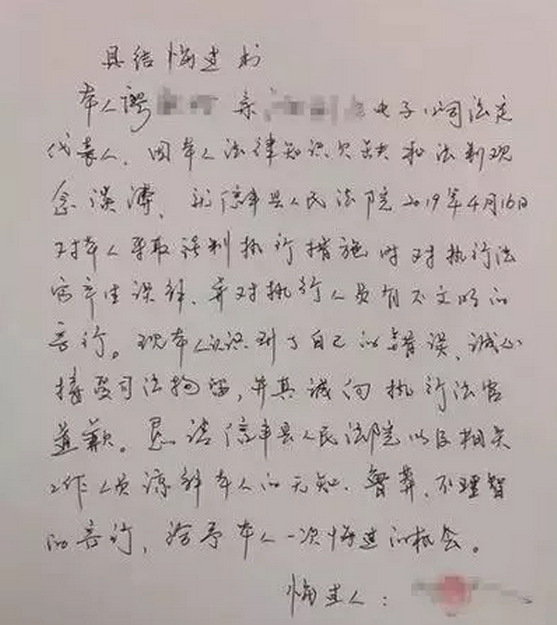 具结悔过书
本人谬 系 电子公司法定
代表人，因本人法律知识欠缺和法制观
念淡薄，我信丰县人民法院2019年4月16日
对本人采取强制执行措施时对执行法
官产生误解，并对执行人员有不文明的
言行。现本人认识到了自己的错误，诚心
接受司法拘留，并真诚向执行法官
道歉。恳请信丰县人民法院以及相关
工作人员谅解本人的无知、鲁莽、不理智
的言行，给予本人一次悔过的机会。
悔过人：